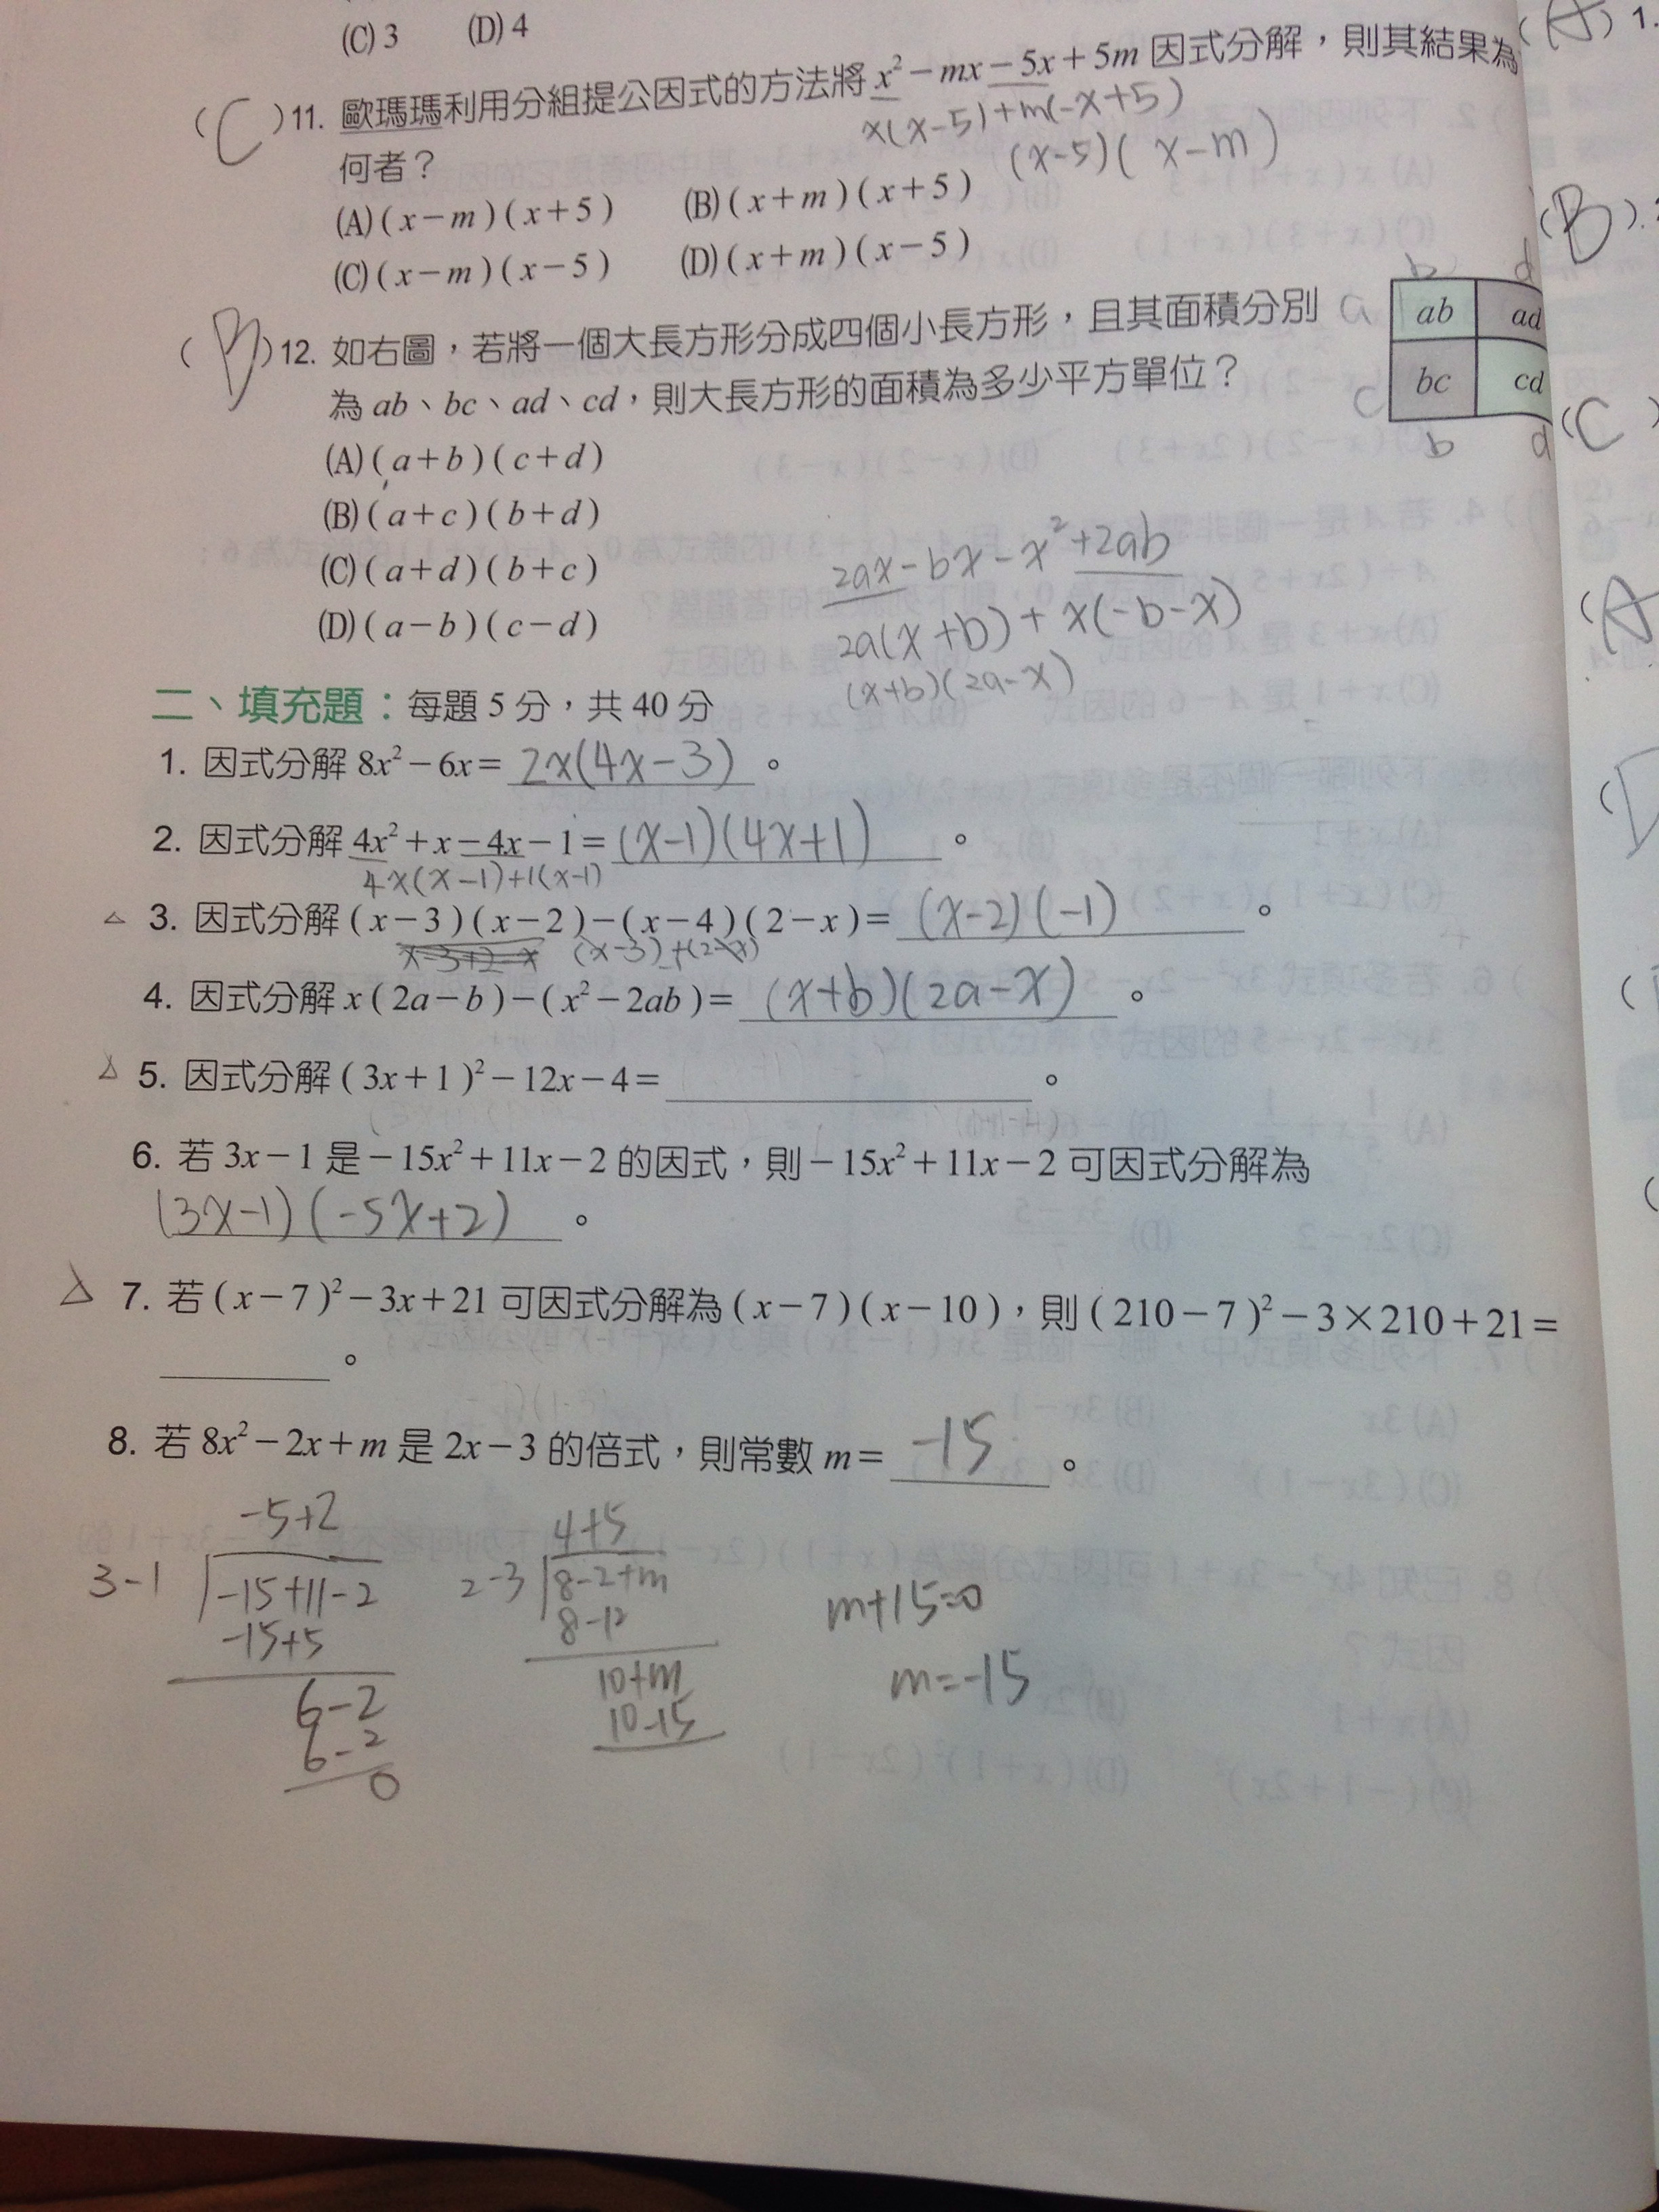 (C) 3 (D) 4
(C) 11. 歐瑪瑪利用分組提公因式的方法將 x² − mx − 5x + 5m 因式分解，則其結果為
x(x-5)+m(-x+5)
何者？
(x-5)(x-m)
(A) (x−m)(x+5) (B) (x+m)(x+5)
(C) (x−m)(x−5) (D) (x+m)(x−5)
(B) 12. 如右圖，若將一個大長方形分成四個小長方形，且其面積分別
為 ab、bc、ad、cd，則大長方形的面積為多少平方單位？
b d
a ab ad
c bc cd
b d
(A) (a+b)(c+d)
(B) (a+c)(b+d)
(C) (a+d)(b+c)
(D) (a−b)(c−d)
2ax-bx-x²+2ab
2a(x+b)+x(-b-x)
(x+b)(2a-x)
二、填充題：每題 5 分，共 40 分
1. 因式分解 8x² − 6x = 2x(4x-3) 。
2. 因式分解 4x² + x − 4x − 1 = (x-1)(4x+1) 。
4x(x-1)+1(x-1)
△ 3. 因式分解 (x−3)(x−2)−(x−4)(2−x) = (x-2)(-1) 。
4. 因式分解 x(2a−b)−(x²−2ab) = (x+b)(2a-x) 。
△ 5. 因式分解 (3x+1)²−12x−4 = 。
6. 若 3x−1 是 −15x²+11x−2 的因式，則 −15x²+11x−2 可因式分解為
(3x-1)(-5x+2) 。
△ 7. 若 (x−7)²−3x+21 可因式分解為 (x−7)(x−10)，則 (210−7)²−3×210+21 =
。
8. 若 8x²−2x+m 是 2x−3 的倍式，則常數 m = -15 。
-5+2
3-1 -15+11-2
-15+5
6-2
6-2
0
4+5
2-3 8-2+m
8-12
10+m
10-15
m+15=0
m=-15
(A) 1.
(B)
(C)
(A